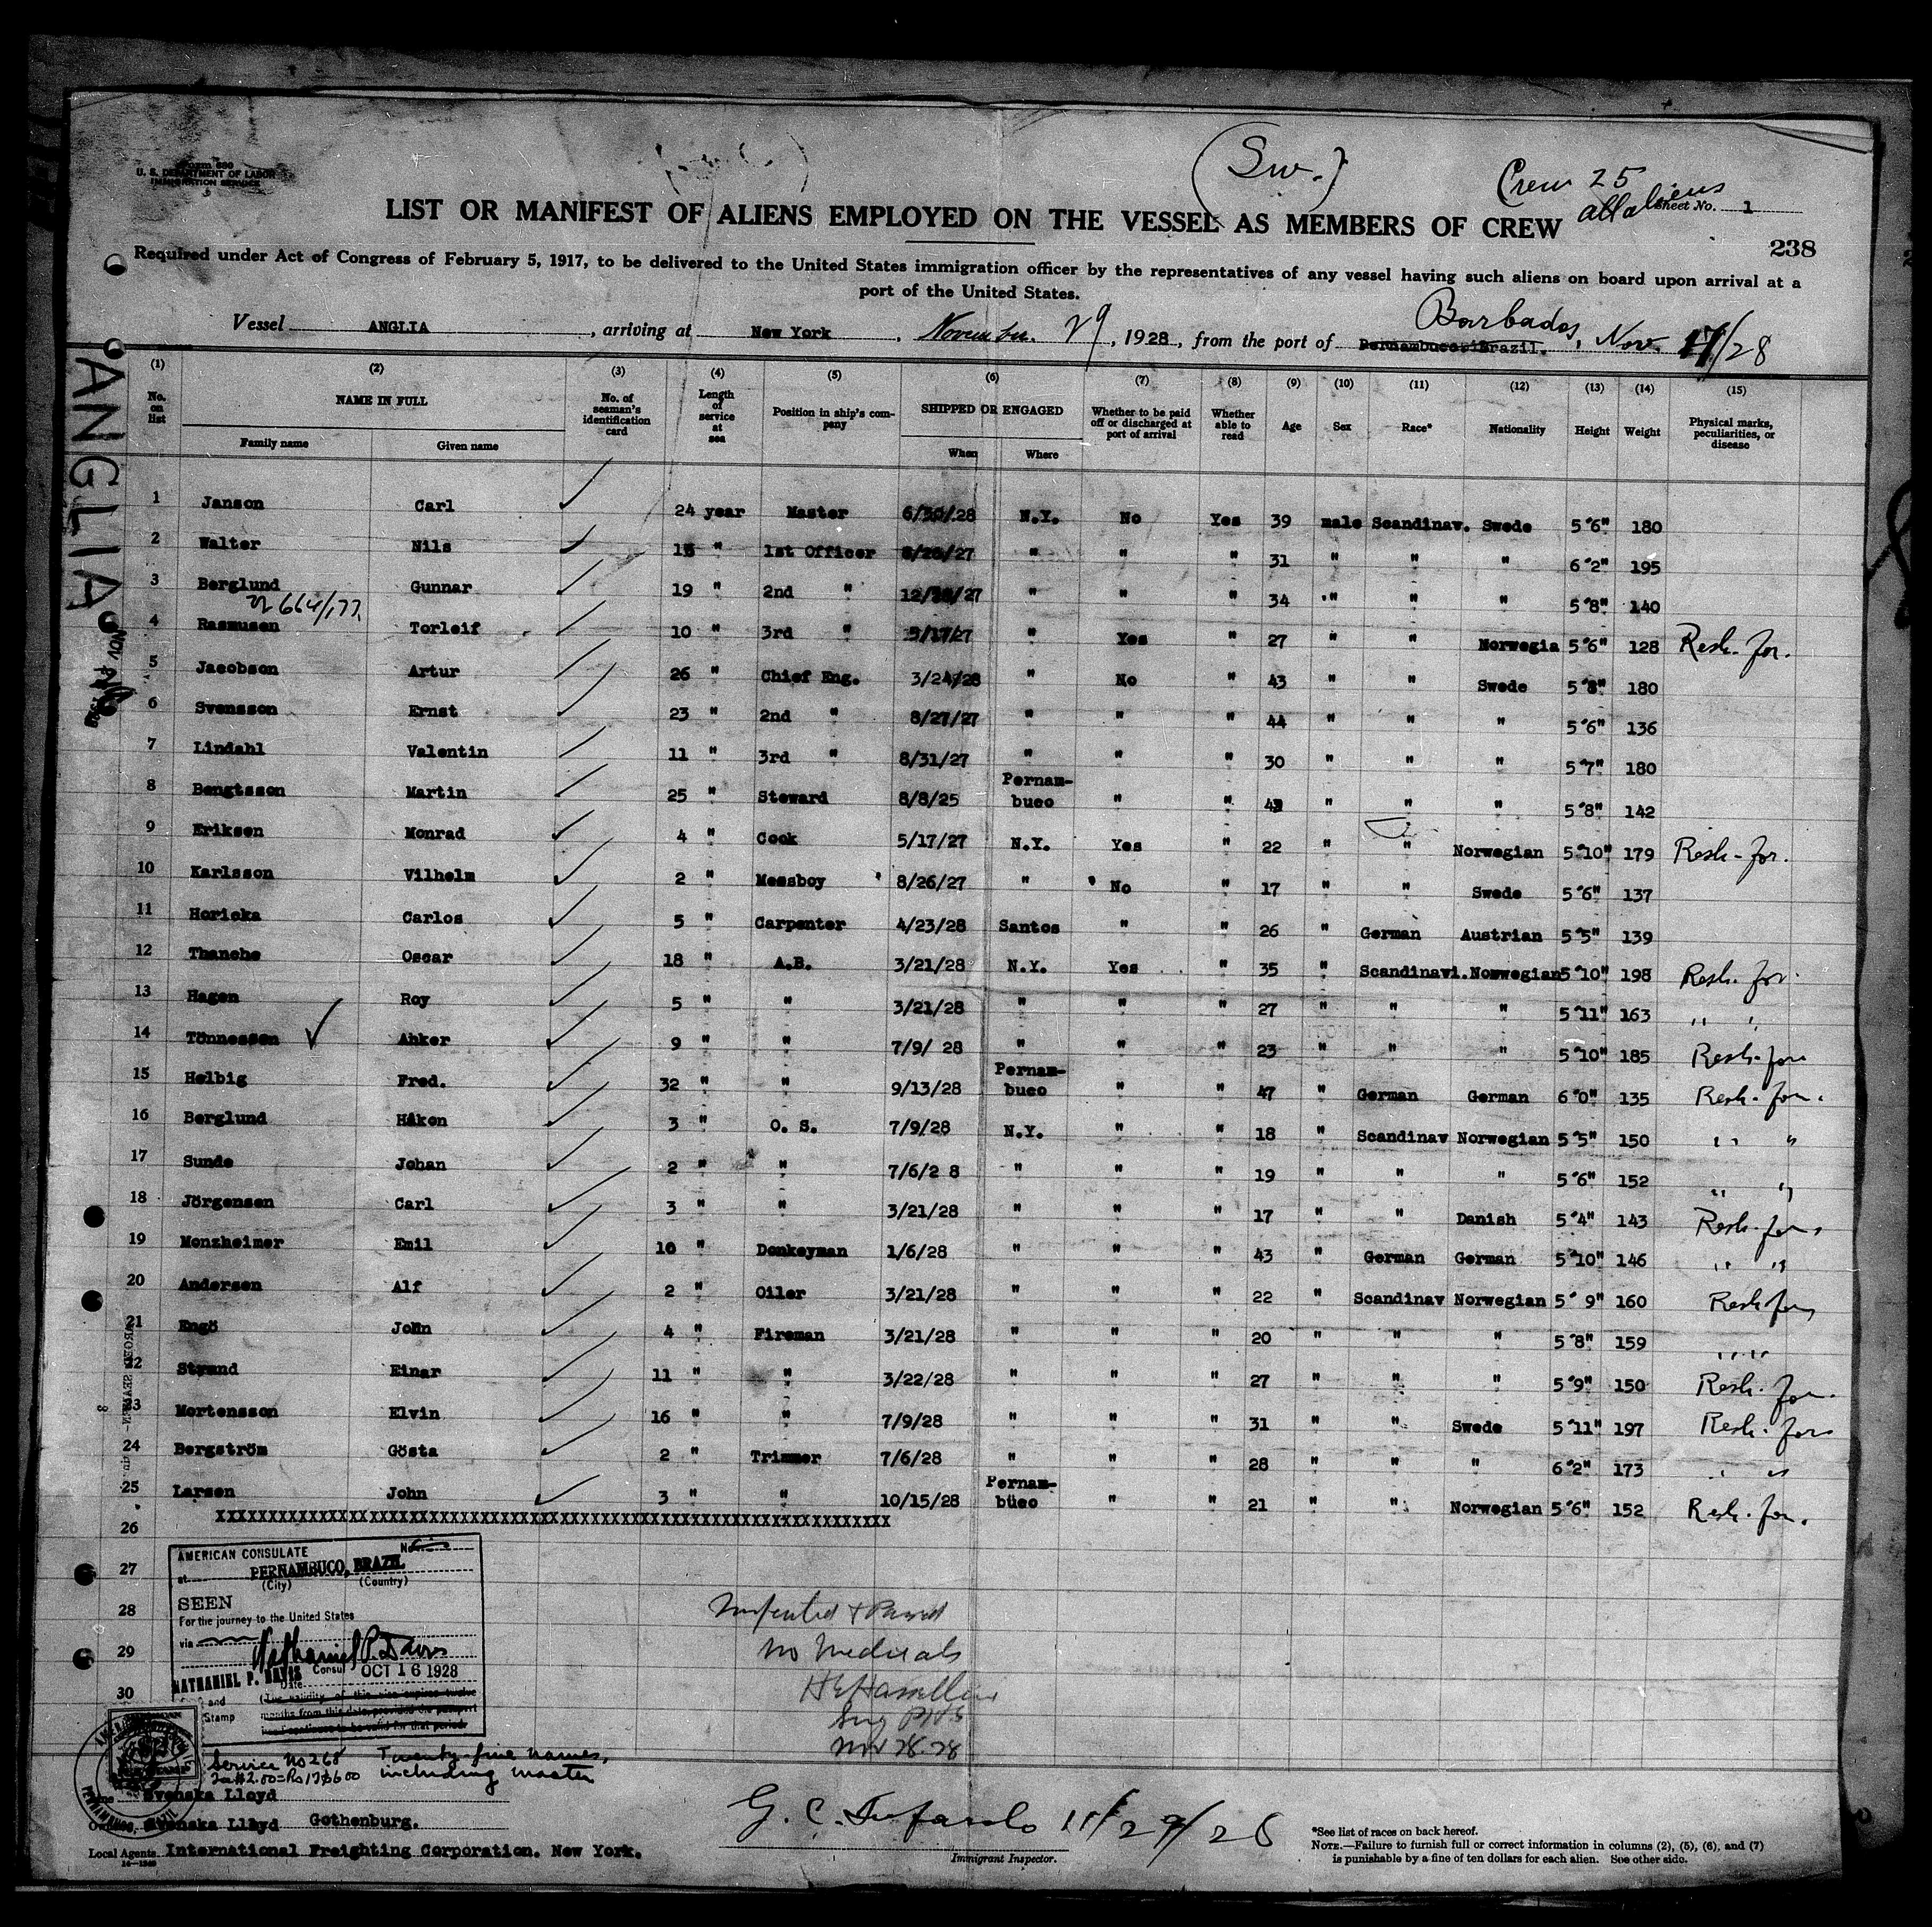 Form 680
U. S. DEPARTMENT OF LABOR
IMMIGRATION SERVICE
(Sw.)
Crew 25
all aliens
Sheet No. 1
LIST OR MANIFEST OF ALIENS EMPLOYED ON THE VESSEL AS MEMBERS OF CREW
238
Required under Act of Congress of February 5, 1917, to be delivered to the United States immigration officer by the representatives of any vessel having such aliens on board upon arrival at a
port of the United States.
Vessel ANGLIA, arriving at New York, November 29, 1928, from the port of Pernambuco, Brazil. Barbados, Nov. 17/28
ANGLIA
(1) (2) (3) (4) (5) (6) (7) (8) (9) (10) (11) (12) (13) (14) (15)
No. on list NAME IN FULL Family name Given name No. of seaman's identification card Length of service at sea Position in ship's company SHIPPED OR ENGAGED When Where Whether to be paid off or discharged at port of arrival Whether able to read Age Sex Race* Nationality Height Weight Physical marks, peculiarities, or disease
1 Janson Carl 24 year Master 6/30/28 N.Y. No Yes 39 male Scandinav. Swede 5"6" 180
2 Walter Nils 15 " 1st Officer 8/26/27 " " " 31 " " " 6"2" 195
3 Berglund Gunnar 19 " 2nd " 12/ /27 " " " 34 " " " 5"8" 140
664/177
4 Rasmusen Torleif 10 " 3rd " 5/17/27 " Yes " 27 " " Norwegia 5"6" 128 Resh. for.
5 Jacobson Artur 26 " Chief Eng. 3/24/28 " No " 43 " " Swede 5"8" 180
6 Svensson Ernst 23 " 2nd " 8/27/27 " " " 44 " " " 5"6" 136
7 Lindahl Valentin 11 " 3rd " 8/31/27 " " " 30 " " " 5"7" 180
8 Bengtsson Martin 25 " Steward 8/8/25 Pernambuco " " 43 " " " 5"8" 142
9 Eriksen Monrad 4 " Cook 5/17/27 N.Y. Yes " 22 " " Norwegian 5"10" 179 Resh. for.
10 Karlsson Vilhelm 2 " Messboy 8/26/27 " No " 17 " " Swede 5"6" 137
11 Horicka Carlos 5 " Carpenter 4/23/28 Santos " " 26 " German Austrian 5"5" 139
12 Thanche Oscar 18 " A.B. 3/21/28 N.Y. Yes " 35 " Scandinavi. Norwegian 5"10" 198 Resh. for.
13 Hagen Roy 5 " " 3/21/28 " " " 27 " " " 5"11" 163 " "
14 Tönnessen Ahker 9 " " 7/9/ 28 " " " 23 " " " 5"10" 185 Resh. for
15 Helbig Fred. 32 " " 9/13/28 Pernambuco " " 47 " German German 6"0" 135 Resh. for.
16 Berglund Håkon 3 " O. S. 7/9/28 N.Y. " " 18 " Scandinav Norwegian 5"5" 150 " "
17 Sunde Johan 2 " " 7/6/2 8 " " " 19 " " " 5"6" 152 " "
18 Jörgensen Carl 3 " " 3/21/28 " " " 17 " " Danish 5"4" 143 Resh. for
19 Monzheimer Emil 10 " Donkeyman 1/6/28 " " " 43 " German German 5"10" 146 " "
20 Andersen Alf 2 " Oiler 3/21/28 " " " 22 " Scandinav Norwegian 5" 9" 160 Resh for
21 Engö John 4 " Fireman 3/21/28 " " " 20 " " " 5"8" 159 " "
22 Strand Einar 11 " " 3/22/28 " " " 27 " " " 5"9" 150 Resh. for.
23 Mortensson Elvin 16 " " 7/9/28 " " " 31 " " Swede 5"11" 197 Resh. for
24 Bergström Gösta 2 " Trimmer 7/6/28 " " " 28 " " " 6"2" 173 " "
25 Larsen John 3 " " 10/15/28 Pernambuco " " 21 " " Norwegian 5"6" 152 Resh. for.
26
27
28
29
30
AMERICAN CONSULATE No.
at PERNAMBUCO, BRAZIL
(City) (Country)
SEEN
For the journey to the United States
via
Nathaniel P. Davis
NATHANIEL P. DAVIS Consul
Date OCT 16 1928
and Stamp (The validity of this visa expires twelve
months from this date, provided the passport
itself continues to be valid for that period.
Inspected & Passed
No Medicals
Surg PHS
Nov 28.28
Service No 268
Twenty-five names,
including master
Svenska Lloyd
Svenska Lloyd Gothenburg.
Local Agents International Freighting Corporation. New York.
G. C. 11/29/28
Immigrant Inspector.
*See list of races on back hereof.
NOTE.—Failure to furnish full or correct information in columns (2), (5), (6), and (7)
is punishable by a fine of ten dollars for each alien. See other side.